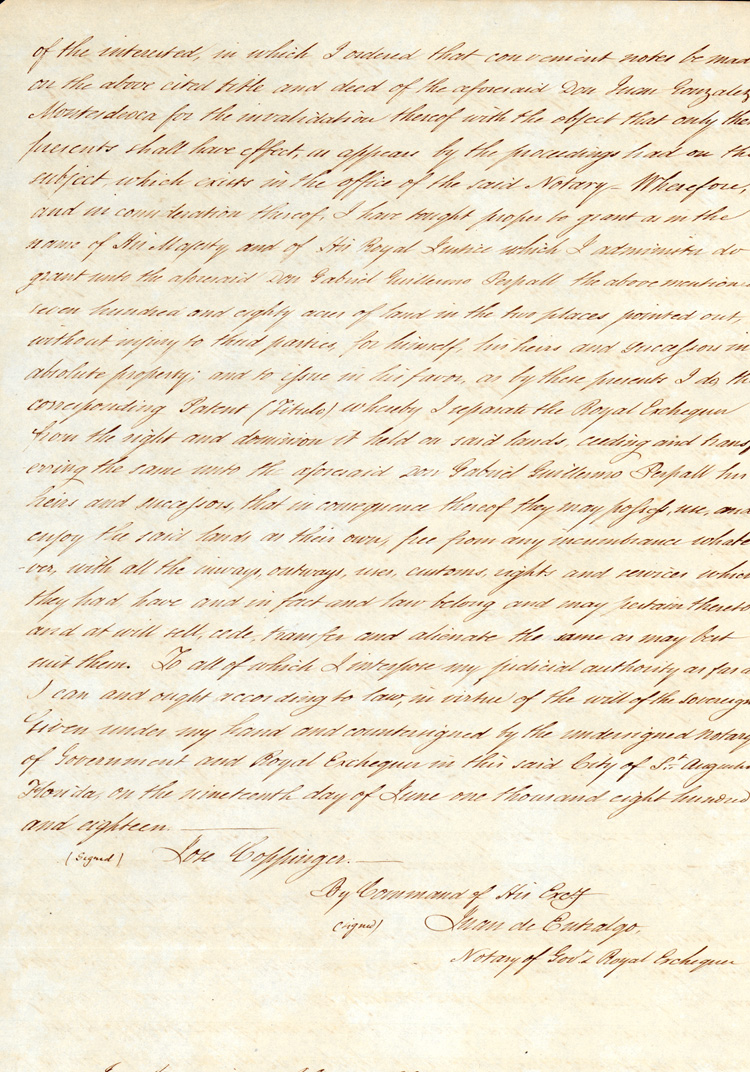 of the interested, in which I ordered that convenient notes be mad
on the above cited title and deed of the aforesaid Don Juan Gonzalez
Montesdeoca for the invalidation thereof with the object that only the
presents shall have effect, as appears by the proceedings had on th
subject, which exists in the office of the said Notary = Wherefore,
and in consideration thereof, I have tought proper to grant as in the
name of His Majesty and of His Royal Justice which I administer do
grant unto the aforesaid Don Gabriel Guillermo Perpall the above mention
seven hundred and eighty acres of land in the two places pointed out,
without injury to third parties, for himself, his heirs and successors in
absolute property; and to issue in his favor, as by these presents I do th
corresponding Patent (Titulo) whereby I separate the Royal Exchequer
from the right and dominion it held on said lands, ceeding and transf
ering the same unto the aforesaid Don Gabriel Guillermo Perpall his
heirs and successors, that in consequence thereof they may possess, use, and
enjoy the said lands as their own, free from any incumbrance whate
-ver, with all the inways, outways, uses, customs, rights and services which
they had, have and in fact and law belong and may pertain thereto
and at will sell, cede, transfer and alienate the same as may best
suit them. To all of which I interpose my judicial authority as far a
I can and ought according to law, in virtue of the will of the Sovereign
Given under my hand and countersigned by the undersigned notary
of Government and Royal Exchequer in this said City of St. Augustin
Florida, on the nineteenth day of June one thousand eight hundred
and eighteen.
(Signed) Jose Coppinger.
By Command of His Excy
(signed) Juan de Entralgo,
Notary of Govt & Royal Exchequer